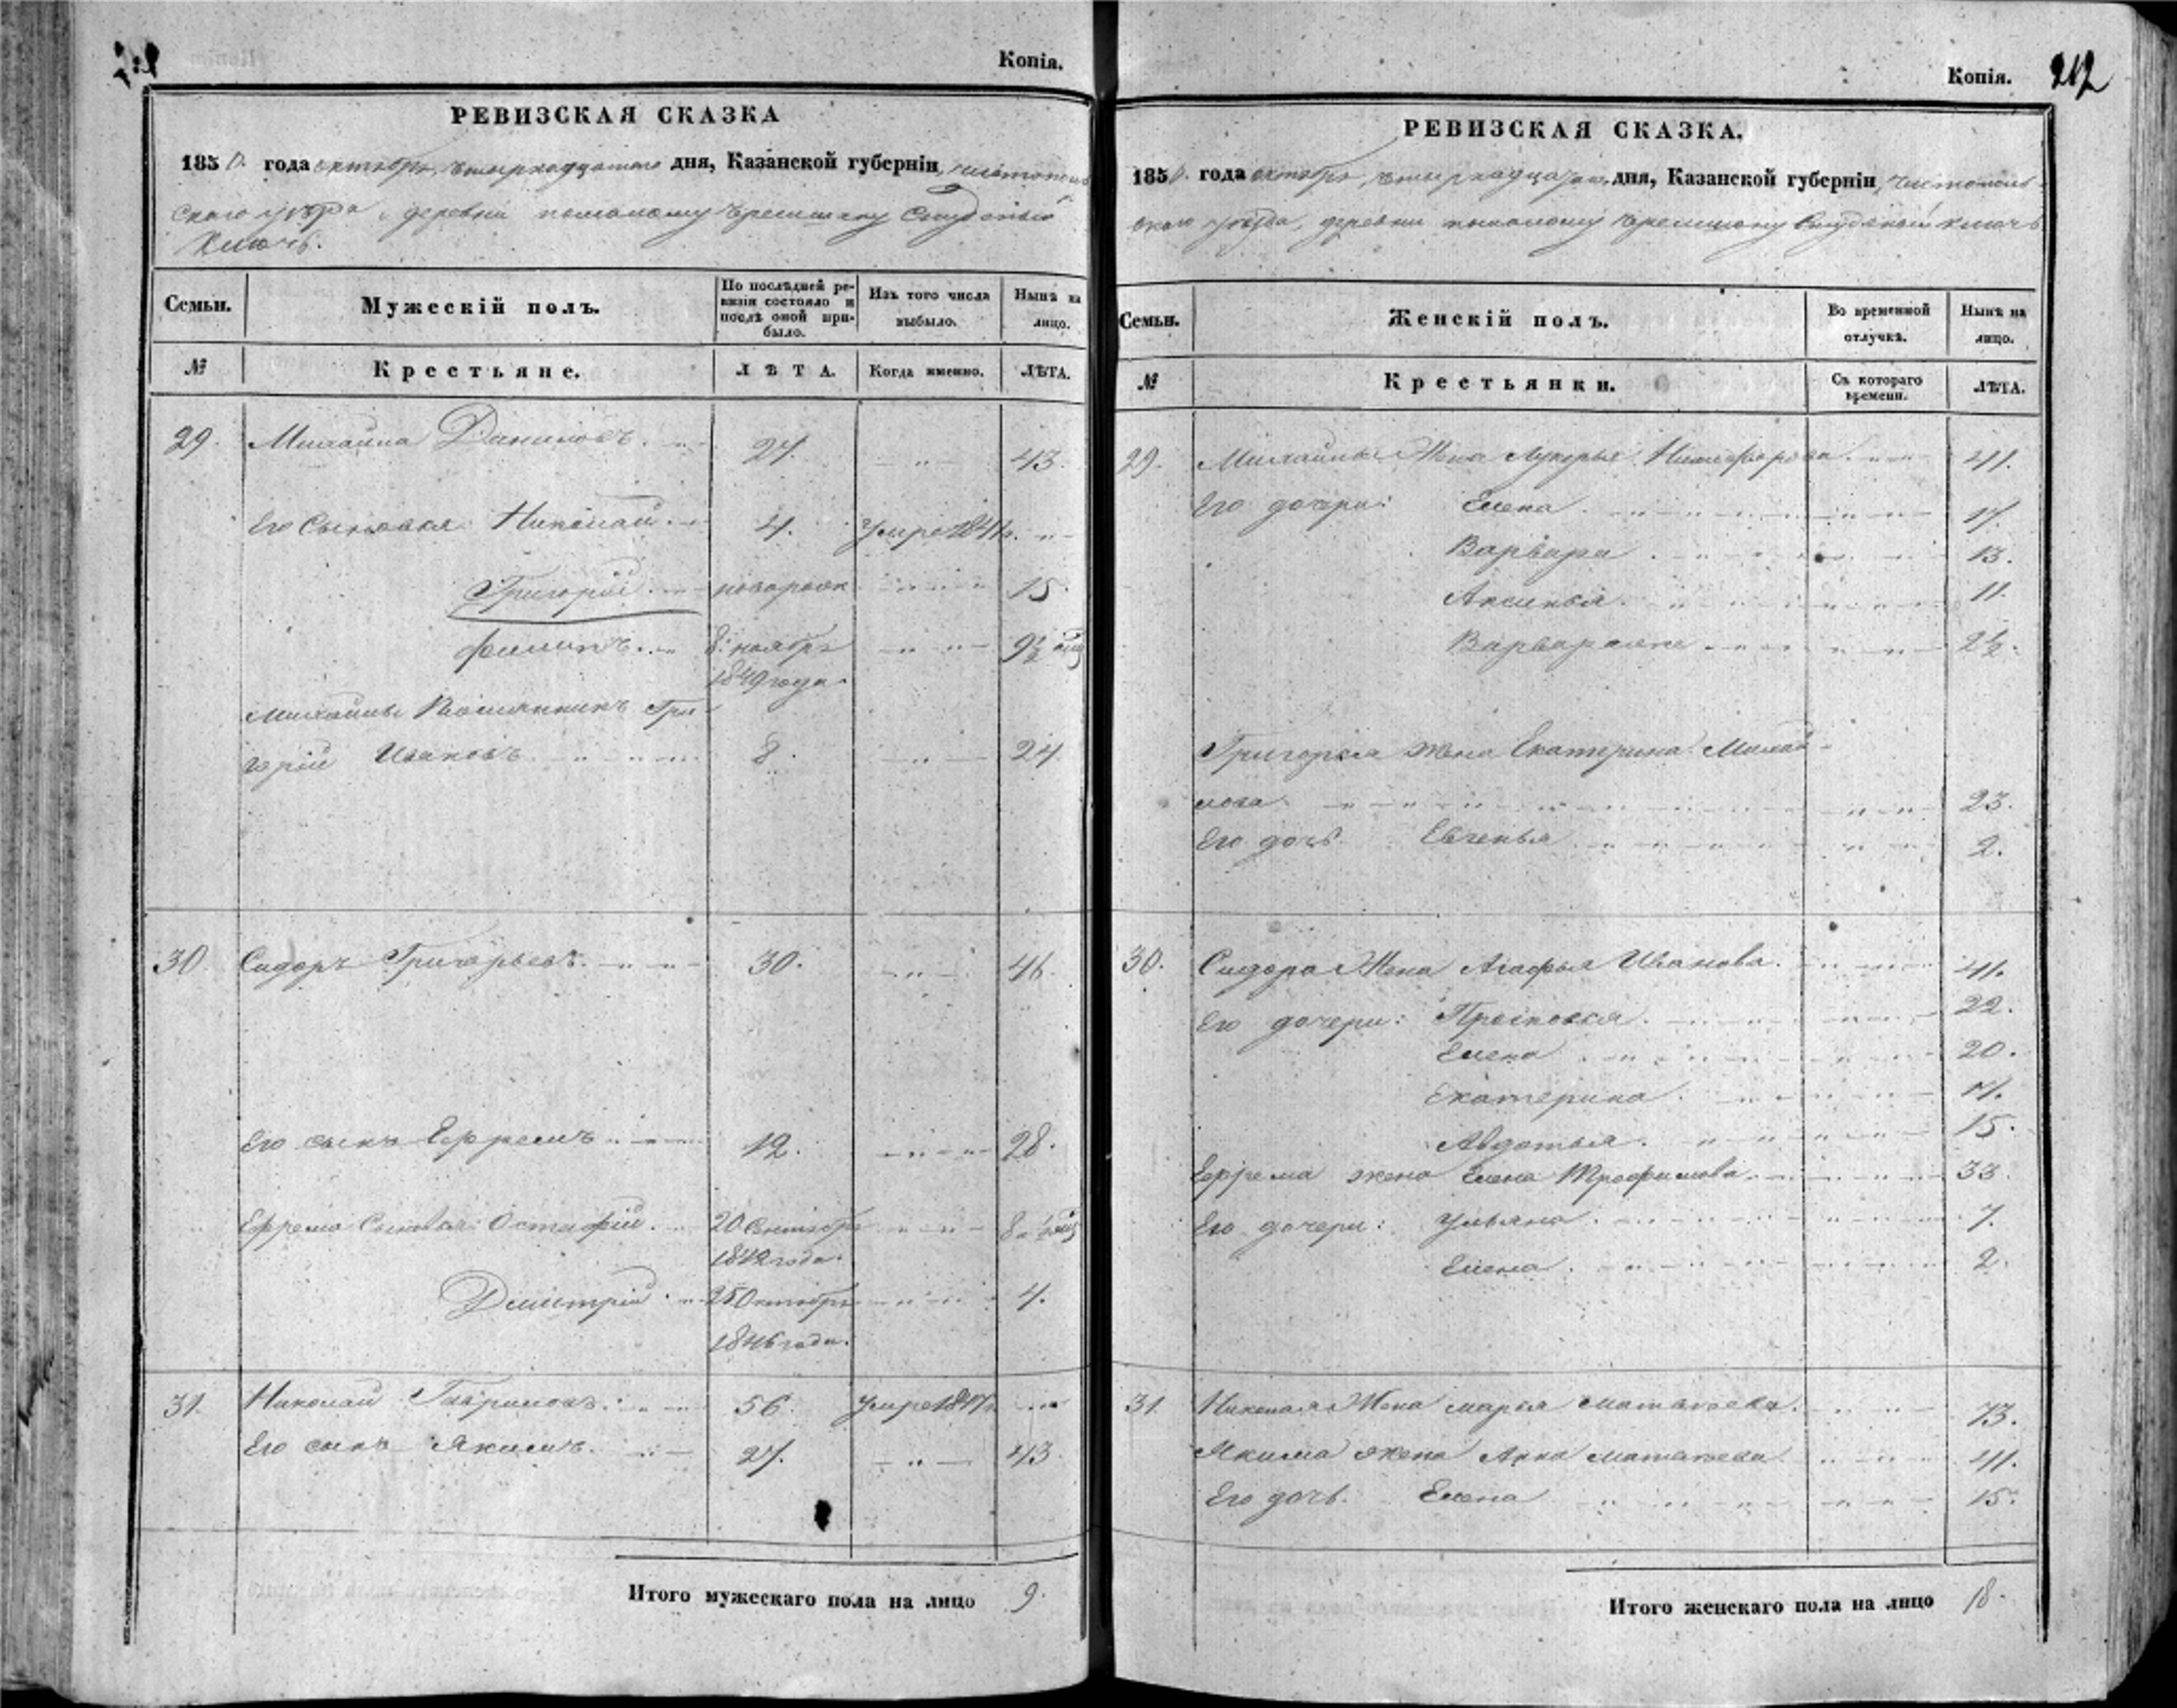 Копія.
РЕВИЗСКАЯ СКАЗКА
1850. года октября четырнадцатаго дня, Казанской губерніи, чистополь
скаго уѣзда, деревни помалому Черемшану Студеный
Ключь.
Семьи. Мужескій полъ. По послѣдней ре-визіи состояло и послѣ оной при-было. Изъ того числа выбыло. Нынѣ на лицо.
№ Крестьяне. ЛѢТА. Когда именно. ЛѢТА.
29. Михайла Даниловъ. 27. 43.
Его Сыновья: Николай. 4. Умре 1841 г.
Григорій новорож 15.
Филипъ. 8. ноября 9½ мѣ
1849 года.
Михайлы Племянникъ Гри-
горій Ивановъ 8. 24
30 Сидоръ Григорьевъ. 30. 46
Его сынъ Ефремъ 12. 28.
Ефрема Сыновья: Остафій. 20 Сентября
1842 года.
Дмитрій 25 Октября 4.
1846 года.
31. Николай Гавриловъ. 56. Умре 1847 г.
Его сынъ Якимъ. 27. 43
Итого мужескаго пола на лицо 9.
Копія. 212
РЕВИЗСКАЯ СКАЗКА.
1850. года октября, четырнадцатаго дня, Казанской губерніи, чистополь-
скаго уѣзда, деревни помалому Черемшану Студеный ключь
Семьи. Женскій полъ. Во временной отлучкѣ. Нынѣ на лицо.
№ Крестьянки. Съ котораго времени. ЛѢТА.
29. Михайлы Жена Лукерья Никифорова. 41.
Его дочери: Елена 17.
Варвара 13.
Аксинья. 11.
Варвара 2½.
Григорья жена Екатерина Михай-
лова 23.
Его дочь Евгенья 2.
30. Сидора Жена Агафья Иванова. 41.
Его дочери: Прасковья. 22.
Елена 20.
Екатерина. 17.
Авдотья. 15.
Ефрема жена Елена Трофимова. 33.
Его дочери: Ульяна. 7.
Елена. 2.
31. Николая Жена марья матвѣева. 73.
Якима жена Анна матвѣева 41.
Его дочь. Елена 15.
Итого женскаго пола на лицо 18.